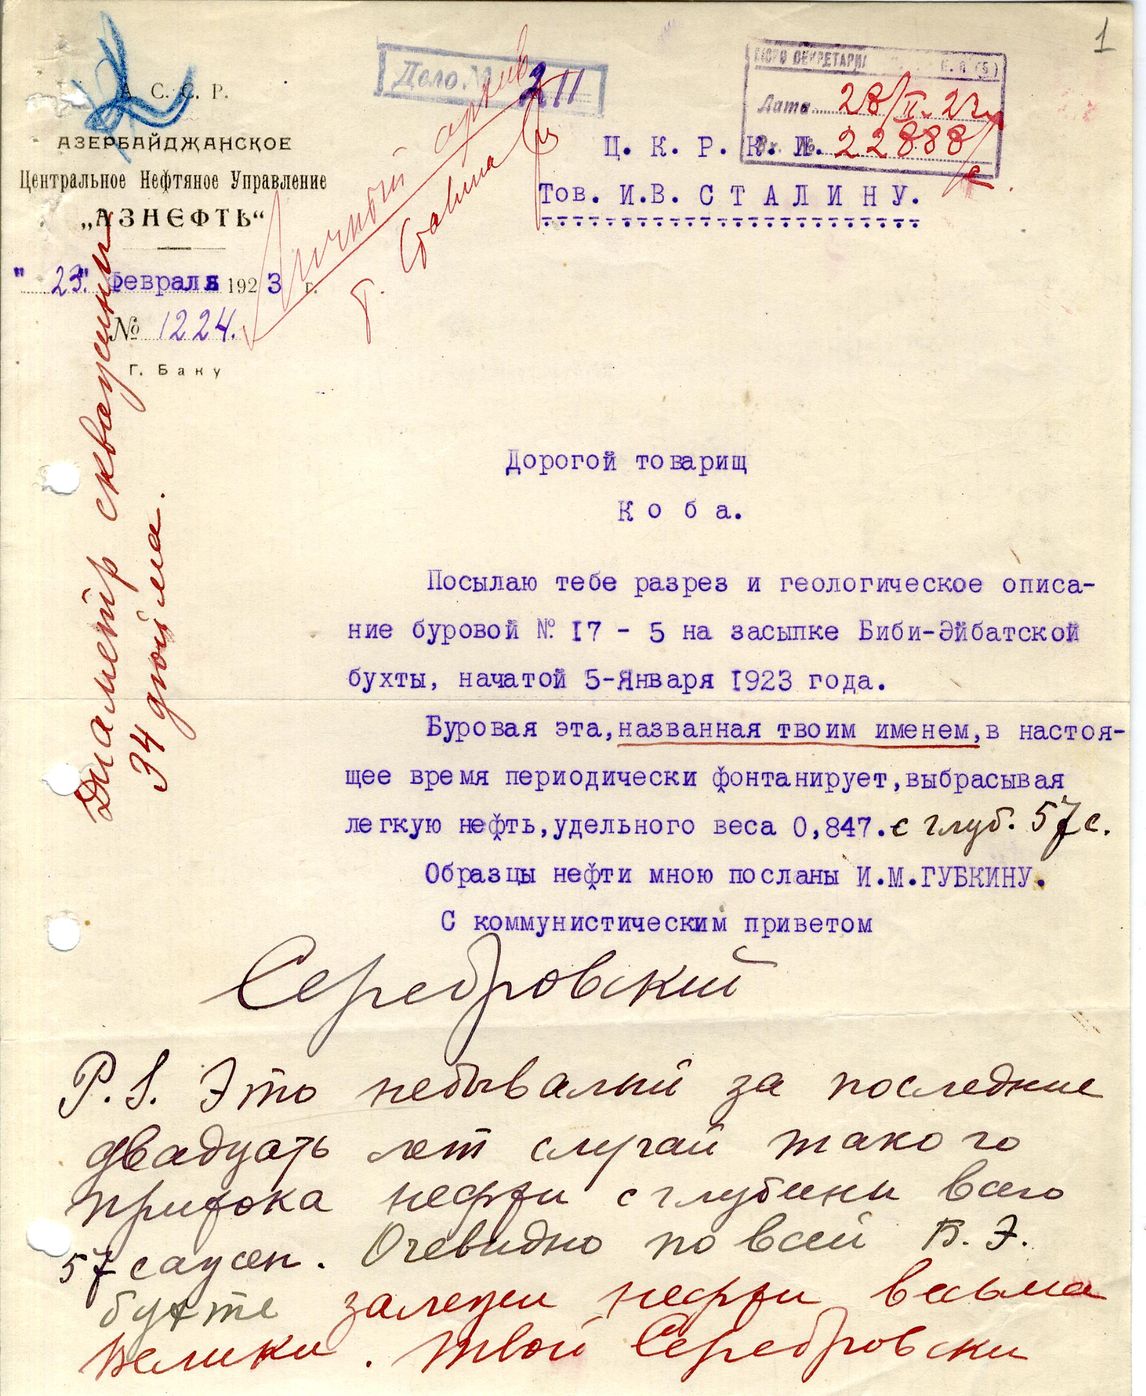 1
Дело № 211
БЮРО СЕКРЕТАРИ
Дата 28/II. 23
Вх. № 22888/с
А. С. С. Р.
АЗЕРБАЙДЖАНСКОЕ
Центральное Нефтяное Управление
„АЗНЕФТЬ“
"23" Февраля 1923 г.
№ 1224.
Г. Баку
Личный архив
т. Сталина
Ц. К. Р. К. П.
Тов. И.В. СТАЛИНУ.
Диаметр скважины
34 дюйма.
Дорогой товарищ
Коба.
Посылаю тебе разрез и геологическое описа-
ние буровой № 17 - 5 на засыпке Биби-Эйбатской
бухты, начатой 5-Января 1923 года.
Буровая эта, названная твоим именем, в настоя-
щее время периодически фонтанирует, выбрасывая
легкую нефть, удельного веса 0,847. с глуб. 57 с.
Образцы нефти мною посланы И.М.ГУБКИНУ.
С коммунистическим приветом
Серебровский
P.S. Это небывалый за последние
двадцать лет случай такого
притока нефти с глубины всего
57 сажен. Очевидно по всей Б. Э.
бухте залежи нефти весьма
велики. Твой Серебровский